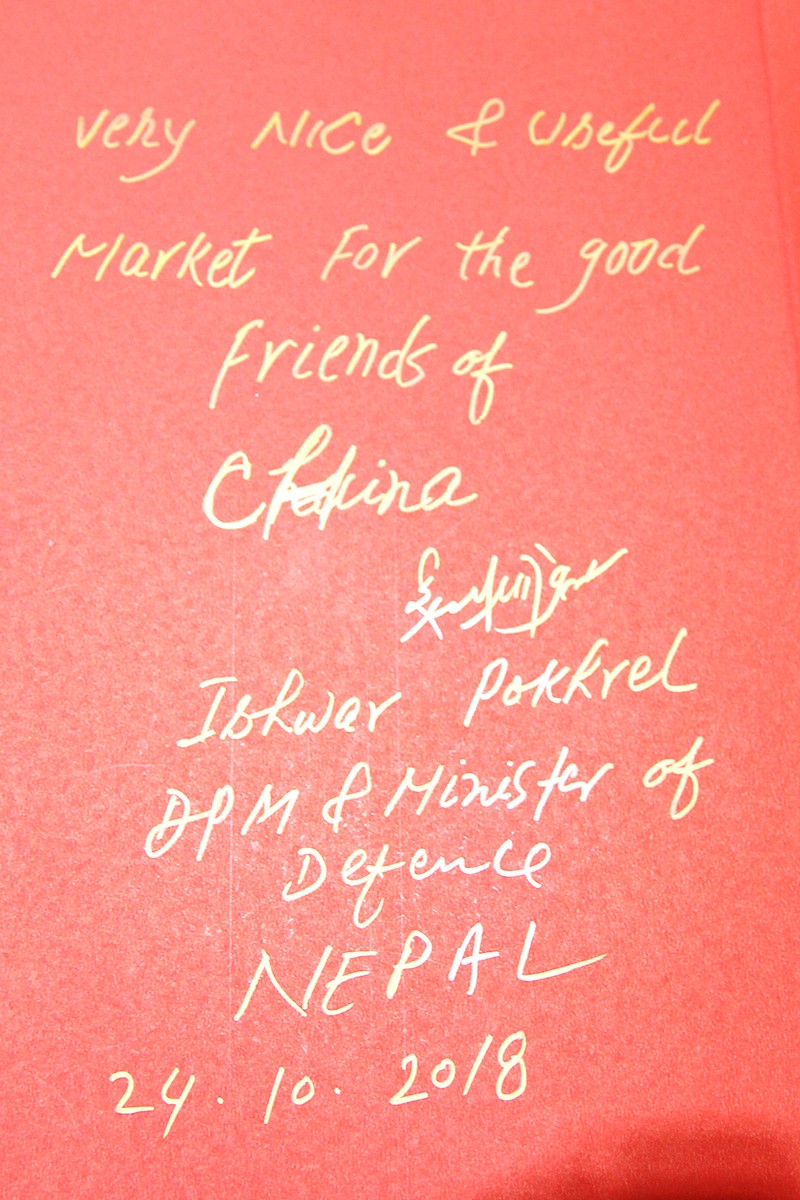 very Nice & useful
Market For the good
Friends of
China
Ishwar Pokhrel
DPM & Minister of
Defence
NEPAL
24.10.2018